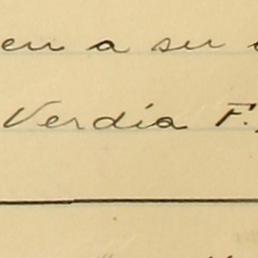 en a su
Verdía F.